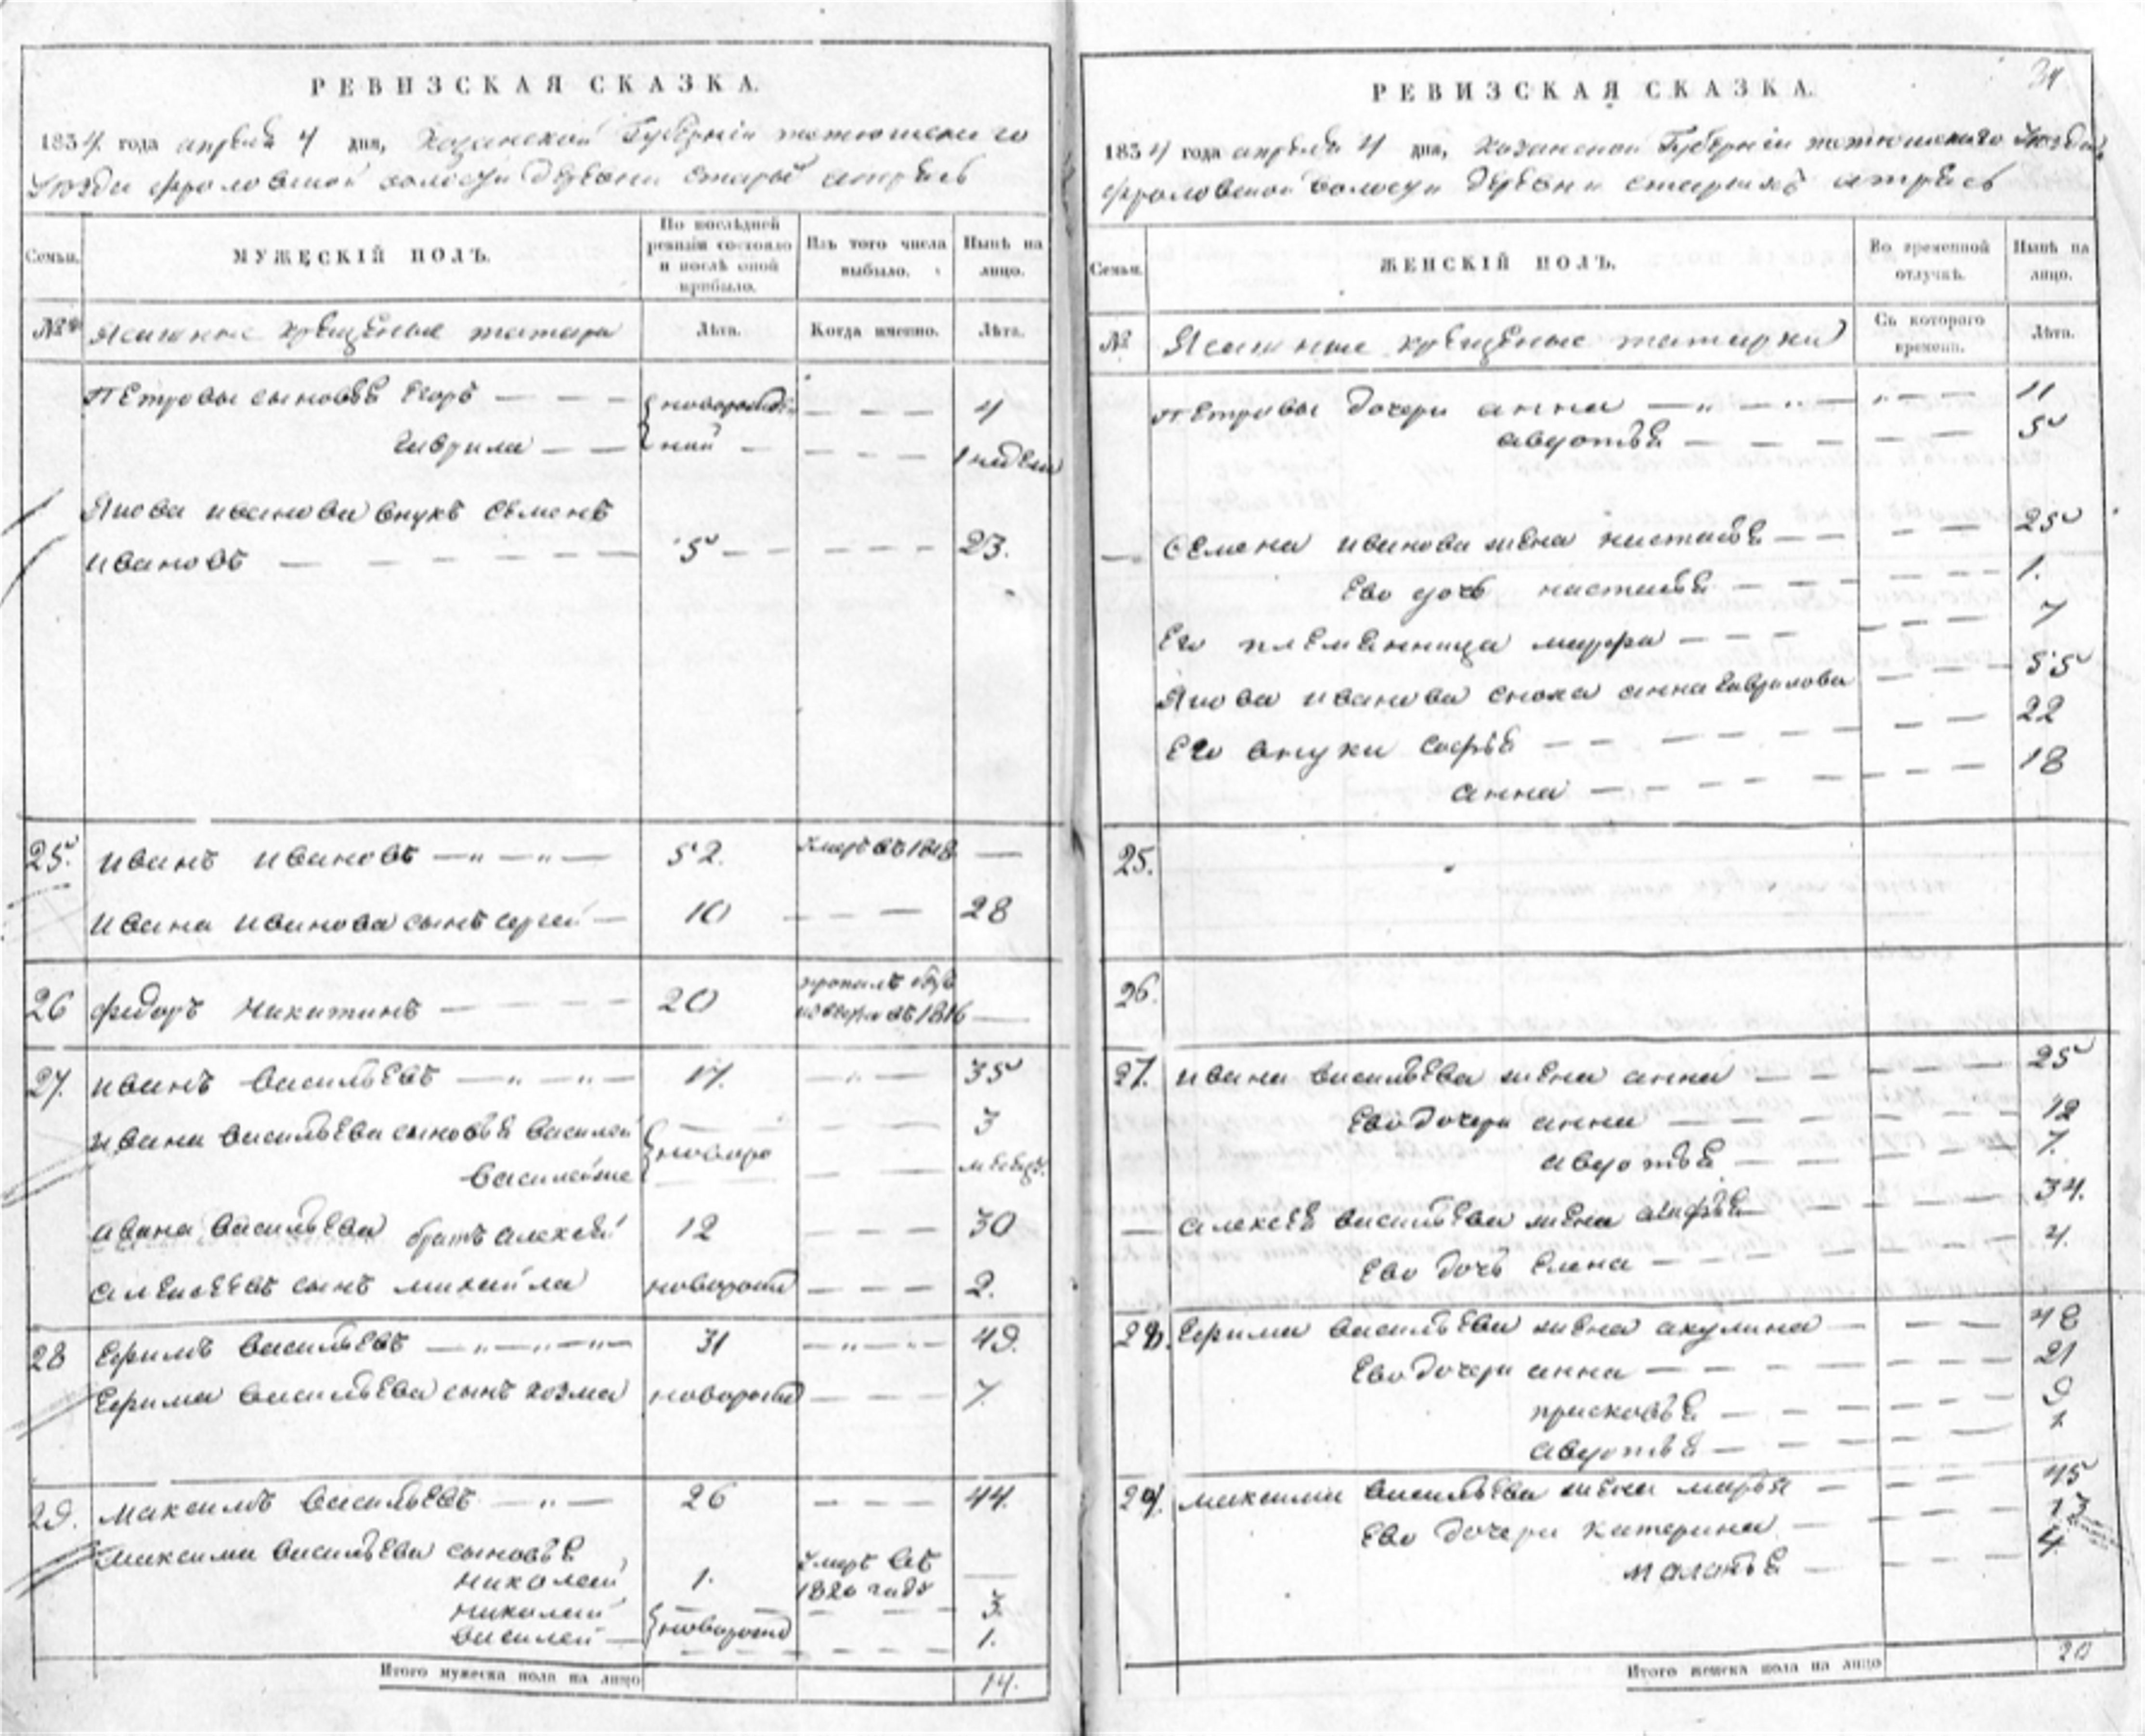 РЕВИЗСКАЯ СКАЗКА.
1834 года апреля 4 дня, Казанской Губернiи тетюшскаго
Уезда фроловской волости деревни старый атрясь
Семьи.
МУЖЕСКIЙ ПОЛЪ.
По послѣдней ревизiи состояло и послѣ оной прибыло.
Изъ того числа выбыло.
Нынѣ на лицо.
№
Ясашные крещеные татары
Лѣта.
Когда именно.
Лѣта.
Петровы сыновья Егоръ — — — новорожде — — — 4
Гаврила — — ной — — — — 1 недели
Якова иванова внукъ Семенъ
ивановъ — — — — — 5 — — — — — 23.
25. иванъ ивановъ — „ — „ — 52. умеръ въ 1818 —
ивана иванова сынъ сергей — 10 — — — 28
26 федоръ Никитинъ — — — — 20 въ 1816 —
27. иванъ васильевъ — „ — „ — 17. — „ — 35
ивана васильева сыновья василей — — — 3
новоро
василей же — —
ивана васильева братъ алексей 12 — — — 30
алексеевъ сынъ михайла новорожд — — — 2.
28 Ефимъ васильевъ — „ — „ — „ — 31 — „ — — 49.
Ефима васильева сынъ козма новорожд — — — 7.
29. максимъ васильевъ — „ — 26 — — — 44.
максима васильева сыновья
николай 1. умеръ въ 1820 году —
николай — — 3.
новорожд
василей — — — — 1.
Итого мужеска пола на лицо 14.
34
РЕВИЗСКАЯ СКАЗКА.
1834 года апреля 4 дня, Казанской Губернiи тетюшскаго Уезда
фроловской волости деревни старыхъ атрясь
Семьи.
ЖЕНСКIЙ ПОЛЪ.
Во временной отлучкѣ.
Нынѣ на лицо.
№
Ясашные крещеные татарки
Съ котораго времени.
Лѣта.
Петровы дочери анна — „ — „ — „ — — 11
авдотья — — — — — — 5
— Семена иванова жена настасья — — — — 25
Ево дочь настасья — — — — — 1.
Его племянница марфа — — — — — — 7
Якова иванова сноха анна гаврилова — — — 55
Его внуки софья — — — — — — — 22
анна — — — — — — — 18
25.
26.
27. ивана васильева жена анна — — — — — 25
Ево дочери анна — — — — — 12
авдотья — — — — — 7.
— алексея васильева жена — — — 34.
Ево дочь Елена — — — — — 4.
28. Ефима васильева жена акулина — — — — 48
Ево дочери анна — — — — — — 21
прасковья — — — — — — 9
авдотья — — — — — — 1
29. максима васильева жена марья — — — 45
Ево дочери катерина — — — 13
маланья — — — 4.
Итого женска пола на лицо 20